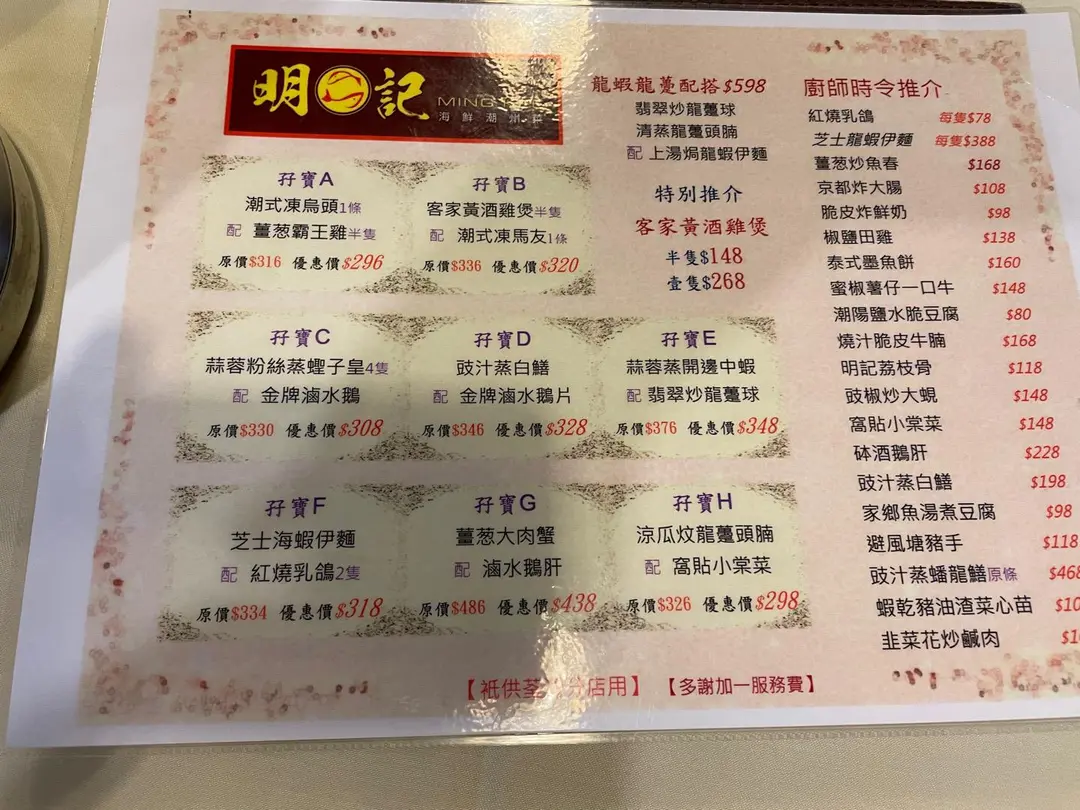 明記
MING
海鮮潮州
孖寶A
潮式凍烏頭1條
配 薑葱霸王雞半隻
原價$316 優惠價$296
孖寶B
客家黃酒雞煲半隻
配 潮式凍馬友1條
原價$336 優惠價$320
孖寶C
蒜蓉粉絲蒸蟶子皇4隻
配 金牌滷水鵝
原價$330 優惠價$308
孖寶D
豉汁蒸白鱔
配 金牌滷水鵝片
原價$346 優惠價$328
孖寶E
蒜蓉蒸開邊中蝦
配 翡翠炒龍躉球
原價$376 優惠價$348
孖寶F
芝士海蝦伊麵
配 紅燒乳鴿2隻
原價$334 優惠價$318
孖寶G
薑葱大肉蟹
配 滷水鵝肝
原價$486 優惠價$438
孖寶H
涼瓜炆龍躉頭腩
配 窩貼小棠菜
原價$326 優惠價$298
龍蝦龍躉配搭$598
翡翠炒龍躉球
清蒸龍躉頭腩
配 上湯焗龍蝦伊麵
特別推介
客家黃酒雞煲
半隻$148
壹隻$268
廚師時令推介
紅燒乳鴿 每隻$78
芝士龍蝦伊麵 每隻$388
薑葱炒魚春 $168
京都炸大腸 $108
脆皮炸鮮奶 $98
椒鹽田雞 $138
泰式墨魚餅 $160
蜜椒薯仔一口牛 $148
潮陽鹽水脆豆腐 $80
燒汁脆皮牛腩 $168
明記荔枝骨 $118
豉椒炒大蜆 $148
窩貼小棠菜 $148
砵酒鵝肝 $228
豉汁蒸白鱔 $198
家鄉魚湯煮豆腐 $98
避風塘豬手 $118
豉汁蒸蟠龍鱔原條 $468
蝦乾豬油渣菜心苗 $10
韭菜花炒鹹肉 $1
【祇供荃 分店用】 【多謝加一服務費】